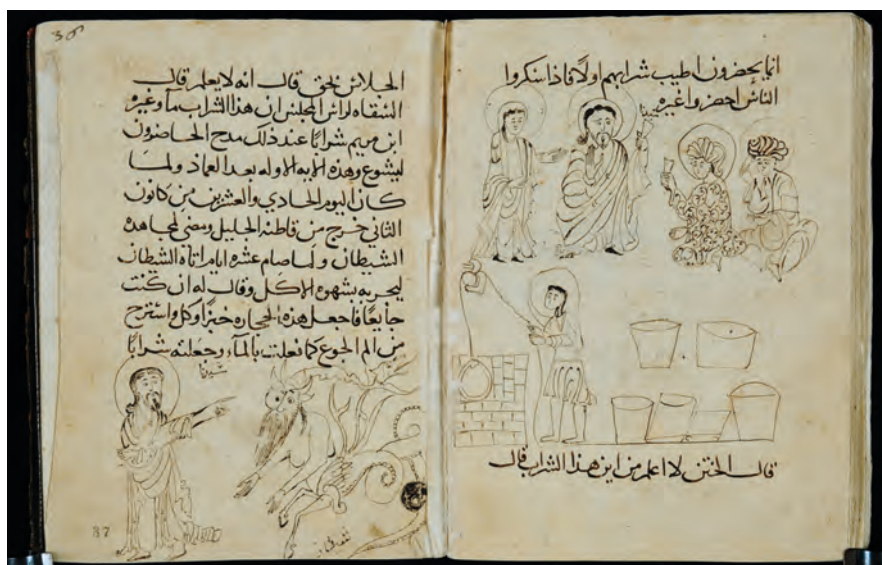 انما يحضرون اطيب شرابهم اولا فاذا سكروا
الناس احضروا غيره
قال الختن لا اعلم من اين هذا الشراب قال
36
الجلاس بحق قال انه لا يعلم قال
السقاه لراس المجلس ان هذا الشراب مآ وغيره
ابن مريم شرابًا عند ذلك مدح الحاضرون
ليشوع وهذه الايه الاوله بعد العماذ ولما
كان اليوم الحادي والعشرين من كانون
الثاني خرج من قاطنه الجليل ومضى لمجاهده
الشيطان ولما صام عشره ايام اتاه الشيطان
ليجربه بشهوه الاكل وقال له ان كنت
جايعًا فاجعل هذه الحجاره خبزًا وكل واسترح
من الم الجوع كما فعلت بالمآء وجعلته شرابًا
87